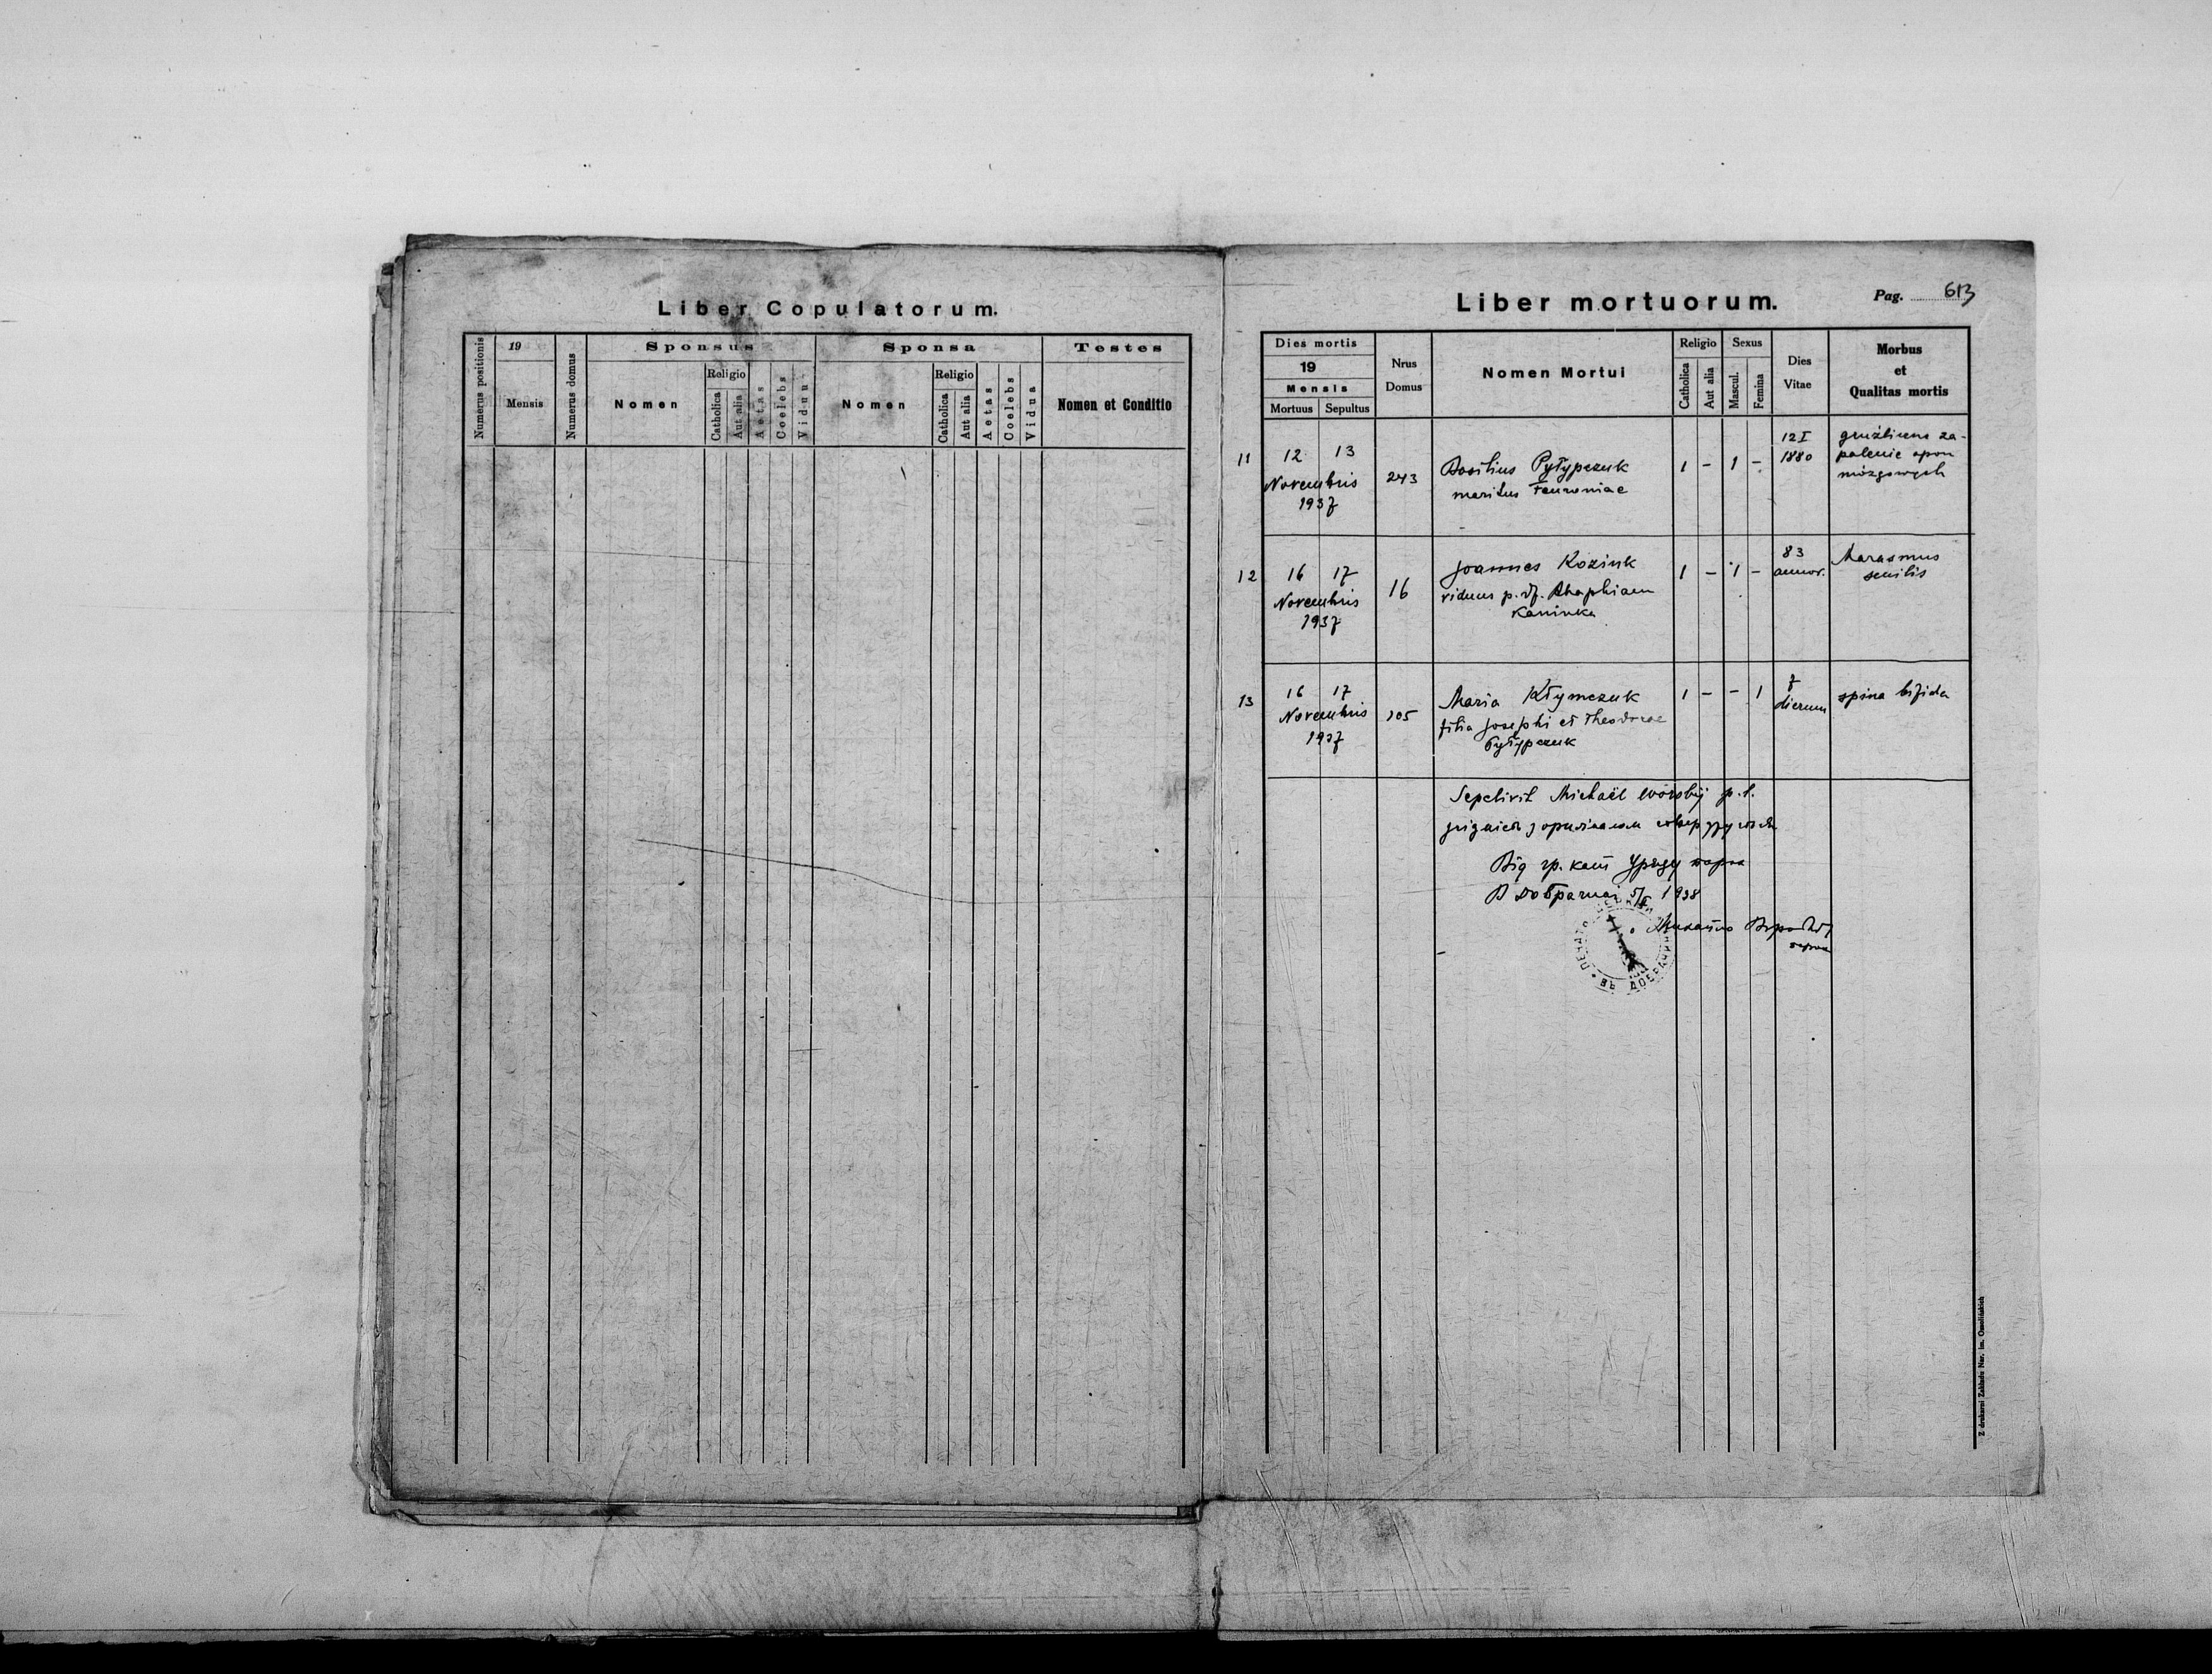 Liber Copulatorum.
Numerus positionis
19
Mensis
Numerus domus
Sponsus
Nomen
Religio
Catholica
Aut alia
Aetas
Coelebs
Viduus
Sponsa
Nomen
Religio
Catholica
Aut alia
Aetas
Coelebs
Vidua
Testes
Nomen et Conditio
Liber mortuorum.
Pag. 613
Dies mortis
19
Mensis
Mortuus Sepultus
Nrus
Domus
Nomen Mortui
Religio
Catholica
Aut alia
Sexus
Mascul.
Femina
Dies
Vitae
Morbus
et
Qualitas mortis
11 12 13
Novembris
1937
243
Basilius Pyłypczuk
maritus Feuroniae
1 - 1 -
12 I
1880
gruźlicene za-
palenie opon
mózgowych
12 16 17
Novembris
1937
16
Joannes Koziuk
viduus p. df. Rhaphiam
Kaninka
1 - 1 -
83
annor.
Marasmus
senilis
13 16 17
Novembris
1937
105
Maria Kłymczuk
filia Josephi et Theodorae
Pyłypczuk
1 - - 1
7
dierum
spina bifida
Sepelivit Michaël p. l.
з оригіналом
Від гр. кат Уряду парох
В 1938
Михайло
парох
Z drukarni Zakładu Nar. im. Ossolińskich